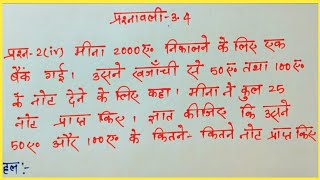 प्रश्नावली-3.4
प्रश्न-2(iv) मीना 2000रु० निकालने के लिए एक
बैंक गई। उसने खजाँची से 50रु० तथा 100रु०
के नोट देने के लिए कहा। मीना ने कुल 25
नोट प्राप्त किए। ज्ञात कीजिए कि उसने
50रु० और 100रु० के कितने-कितने नोट प्राप्त किए
हल: